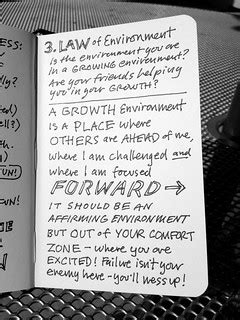 ESS:
3. LAW of Environment
Is the environment you are
In a GROWING environment?
Are your friends helping
you in your GROWTH?
A GROWTH Environment
IS A PLACE where
OTHERS are AHEAD of me,
where I am challenged and
where I am focused
FORWARD →
IT SHOULD BE AN
AFFIRMING ENVIRONMENT
BUT OUT of YOUR COMFORT
ZONE – where you are
EXCITED! Failure isn't your
enemy here – you'll mess up!